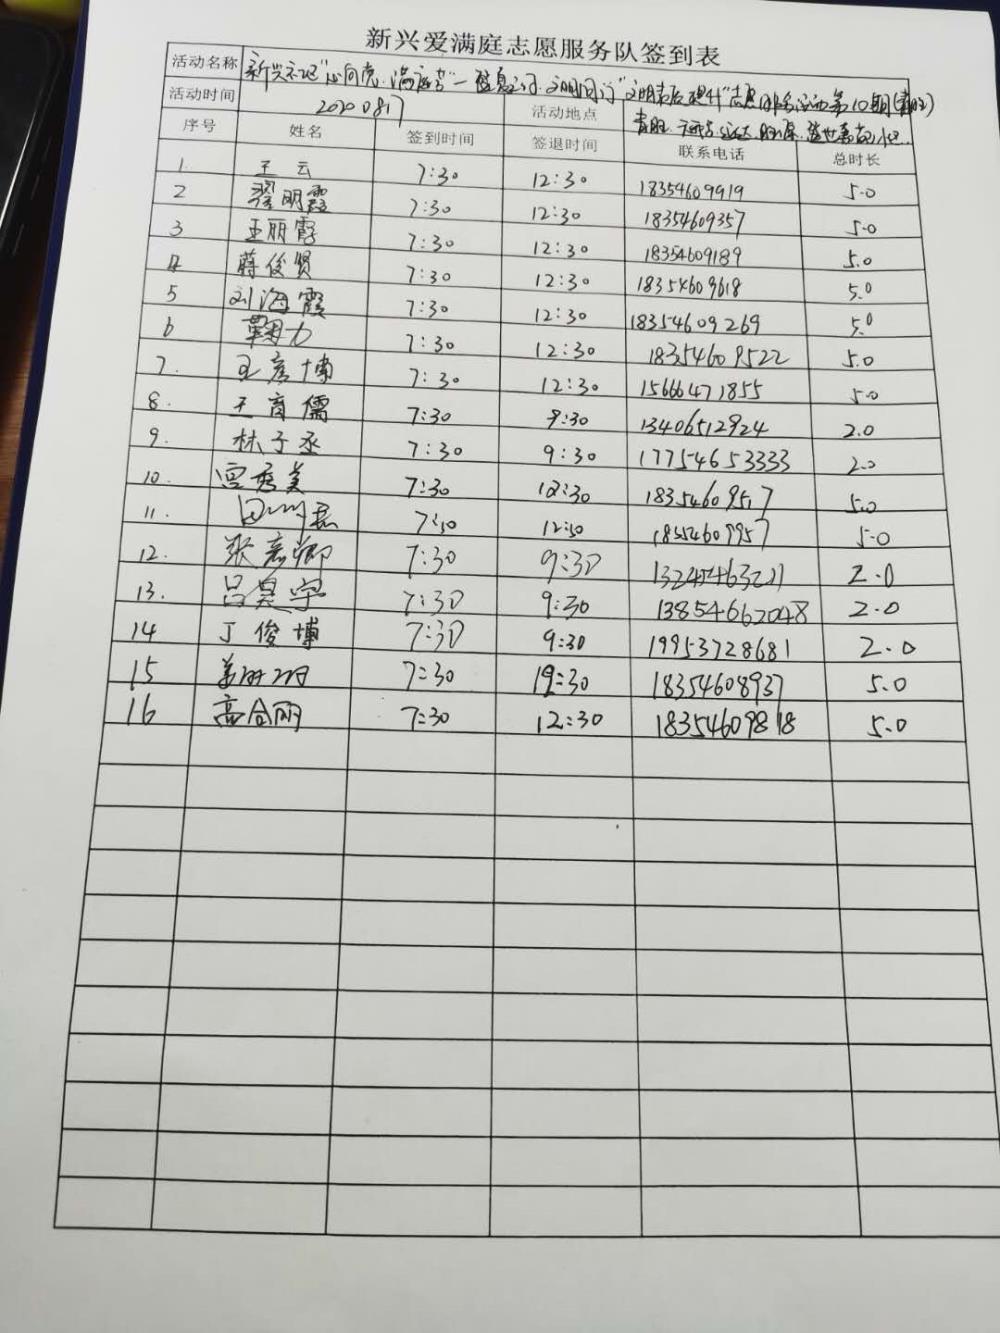 新兴爱满庭志愿服务队签到表
活动名称 新兴社区"心向党·满庭芳"一 文明 志愿服务活动第10期
活动时间 20200817 活动地点
序号 姓名 签到时间 签退时间 联系电话 总时长
1 王云 7:30 12:30 18354609919 5.0
2 翟明霞 7:30 12:30 18354609357 5.0
3 王丽霞 7:30 12:30 18354609189 5.0
4 蒋俊贤 7:30 12:30 18354609618 5.0
5 刘海霞 7:30 12:30 18354609269 5.0
6 鞠力 7:30 12:30 18354609522 5.0
7. 王彦博 7:30 12:30 15666471855 5.0
8. 王育儒 7:30 9:30 13406512924 2.0
9. 林子丞 7:30 9:30 17754653333 2.0
10. 宫秀美 7:30 12:30 18354609517 5.0
11. 田 磊 7:30 12:30 18354609957 5.0
12. 张彦卿 7:30 9:30 2.0
13. 吕昊宇 7:30 9:30 13854662048 2.0
14 丁俊博 7:30 9:30 19953728681 2.0
15 7:30 12:30 18354608937 5.0
16 高合丽 7:30 12:30 18354609818 5.0